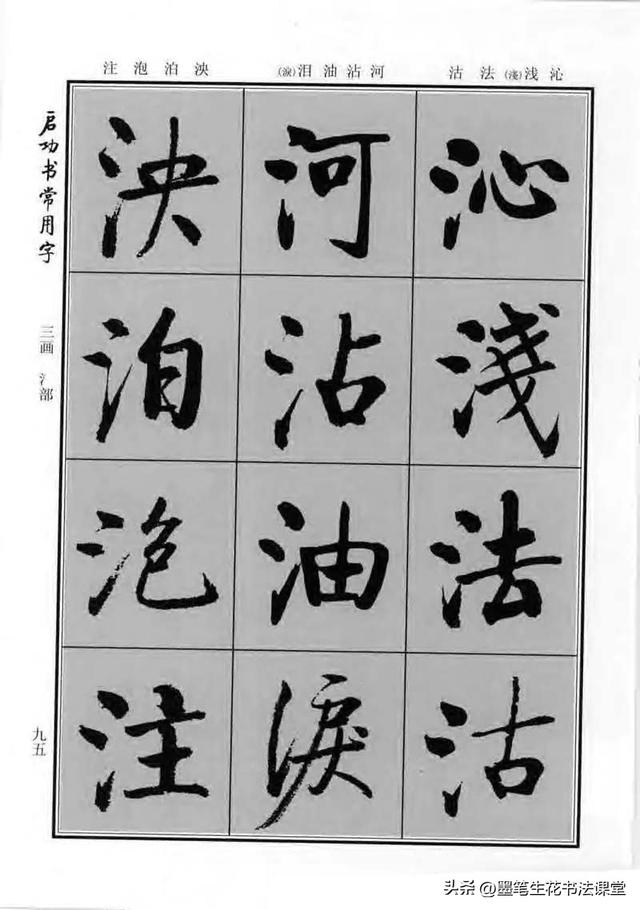 沁浅(淺)法沽 河沾油泪(淚) 泱泊泡注
沁淺法沽
河沾油淚
泱泊泡注
启功书常用字
三画 氵部
九五
头条 @墨笔生花书法课堂